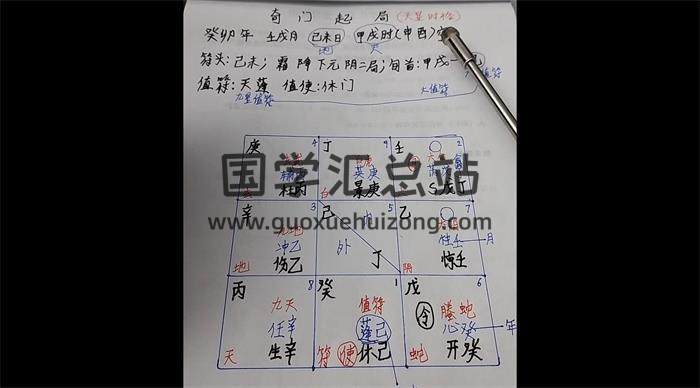 奇门起局(天显时格)
癸卯年 壬戌月 己未日 甲戌时(申酉)空
地 天
符头:己未;霜降下元阴二局;旬首:甲戌一己
值符:天蓬 值使:休门
九星值符 大值符
国学汇总站
www.guoxuehuizong.com
庚 4 丁 9 壬 2
杜丙 英庚 景庚
玄 白
辛 3 己 5 乙 7
九地
冲乙 外 丁 月
地 伤乙 阴 惊壬
丙 8 癸 1 戊 6
九天 值符 腾蛇
任辛 蓬己 心癸 年
生辛 使 休己 开癸
天 符 蛇